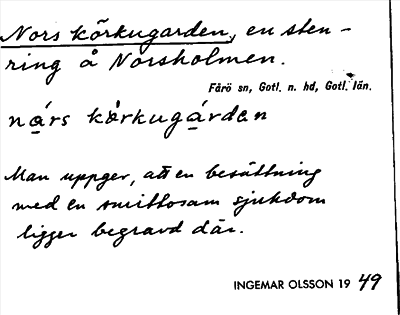 Nors körkugarden, en sten-
ring å Norsholmen.
Fårö sn, Gotl. n. hd, Gotl. län.
nårs kørkugårdan
Man uppger, att en besättning
med en smittosam sjukdom
ligger begravd där.
INGEMAR OLSSON 19 49